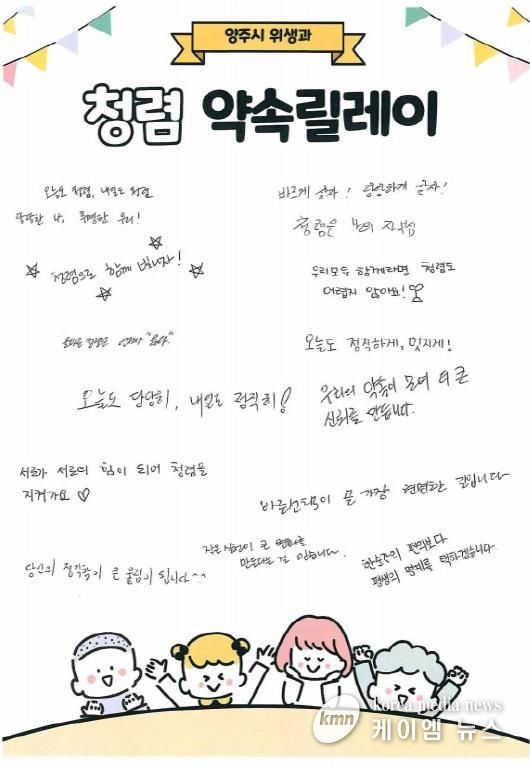 양주시 위생과
청렴 약속릴레이
오늘도 청렴, 내일도 청렴
당당한 나, 투명한 우리!
바르게 살자! 당당하게 살자!
청렴은 나의 자부심
청렴으로 함께 빛나자!
우리모두 함께라면 청렴도
어렵지 않아요!
오늘도 정직하게, 멋지게!
오늘도 당당히, 내일도 정직히!
우리의 약속이 모여 더 큰
신뢰를 만듭니다.
서로가 서로의 힘이 되어 청렴을
지켜가요 ♡
바른선택이 끝 가장 현명한 길입니다
작은 실천이 큰 변화를
만든다는 걸 믿습니다.
한순간의 편의보다
평생의 명예를 택하겠습니다.
당신의 정직함이 큰 울림이 됩니다^^
kmn
Korea media news
케이엠 뉴스